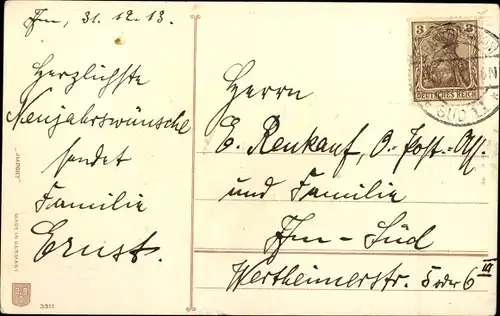 Ffm, 31.12.13.
Herzlichste
Neujahrswünsche
sendet
Familie
Ernst.
Herrn
E. Renkauf, O.-Post-Ass.
und Familie
Ffm-Süd
Wertheimerstr. 5 oder 6 III
3 3
DEUTSCHES REICH
SÜD 11
"IMPORT"
MADE IN GERMANY
3311